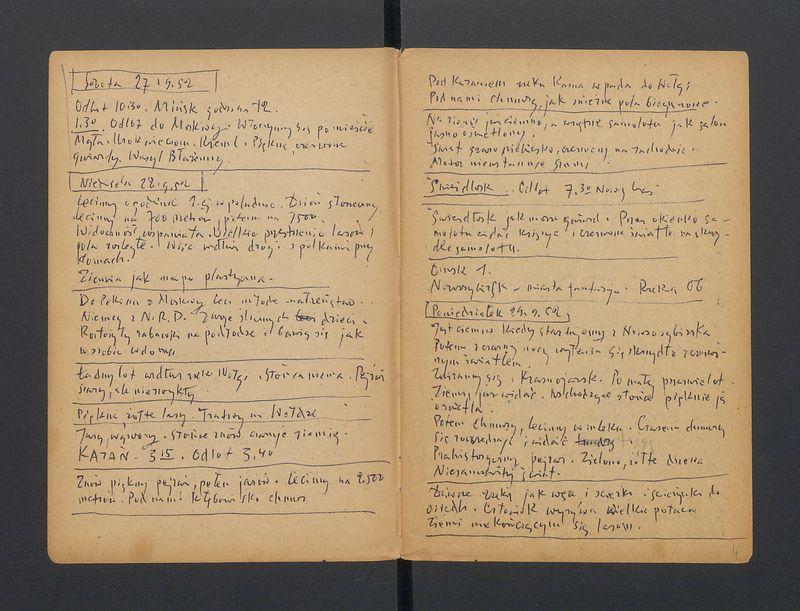 Sobota 27.9.52
Odlot 10.30. Mińsk godzina 12.
1.30. Odlot do Moskwy. Włóczymy się po mieście
Mgła. Kreml. Piękne czerwone
gwiazdy. Wasyl Błażenny.
Niedziela 28.9.52
Lecimy o godzinie w południe. Dzień słoneczny
lecimy na 700 metrów, potem na 1500.
Widoczność wspaniała. Wielkie przestrzenie lasów i
pola rozległe. Wsie wzdłuż drogi z polkami przy
domach.
Ziemia jak mapa plastyczna.
Do Pekinu z Moskwy leci młode małżeństwo.
Niemcy z N.R.D. Dwoje ślicznych dzieci.
Rozłożyły zabawki na podłodze i bawią się jak
u siebie w domu.
Ładny lot wzdłuż rzeki Wołgi. Pejzaż
szary, ale niezwykły.
Piękne żółte lasy. Tratwy na Wołdze
Jary, wąwozy. Słońce znów czaruje ziemię.
KAZAN. 3.15. Odlot 3.40
Znów piękny pejzaż, pełen jarów. Lecimy na 2.500
metrów. Pod nami kłębowisko chmur
Pod Kazaniem rzeka Kama wpada do Wołgi
Pod nami chmury, jak śnieżne pola biegunowe.
Na ziemi już ciemno, a wnętrze samolotu jak salon
jasno oświetlony.
Świat szaro niebiesko, czerwony na zachodzie.
Motor nieustannie
Swierdłowsk. Odlot 7.30 Nowy czas
Swierdłowsk jak morze gwiazd. Przez okienko sa-
molotu widać księżyc i czerwone światło na skrzy-
dle samolotu.
Omsk 1.
Nowosybirsk – miasto fantazja. Rzeka Ob
Poniedziałek 29.9.52
Jest ciemno kiedy startujemy z Nowosybirska
Potem z czarnej nocy wyłania się skrzydło z czerwo-
nym światłem
Zbliżamy się. Krasnojarsk. Pomału
Ziemię już widać. Wschodzące słońce pięknie ją
oświetla.
Potem chmury, lecimy w mleku. Czasem chmury
się rozwadniają i widać
Prahistoryczny pejzaż. Zielone, żółte drzewa
Niesamowity świat.
Dziwne rzeki jak węże i ścieżki do
osiedli. Człowiek wyrywa wielkie połacie
ziemi niekończącym się lasom.
4